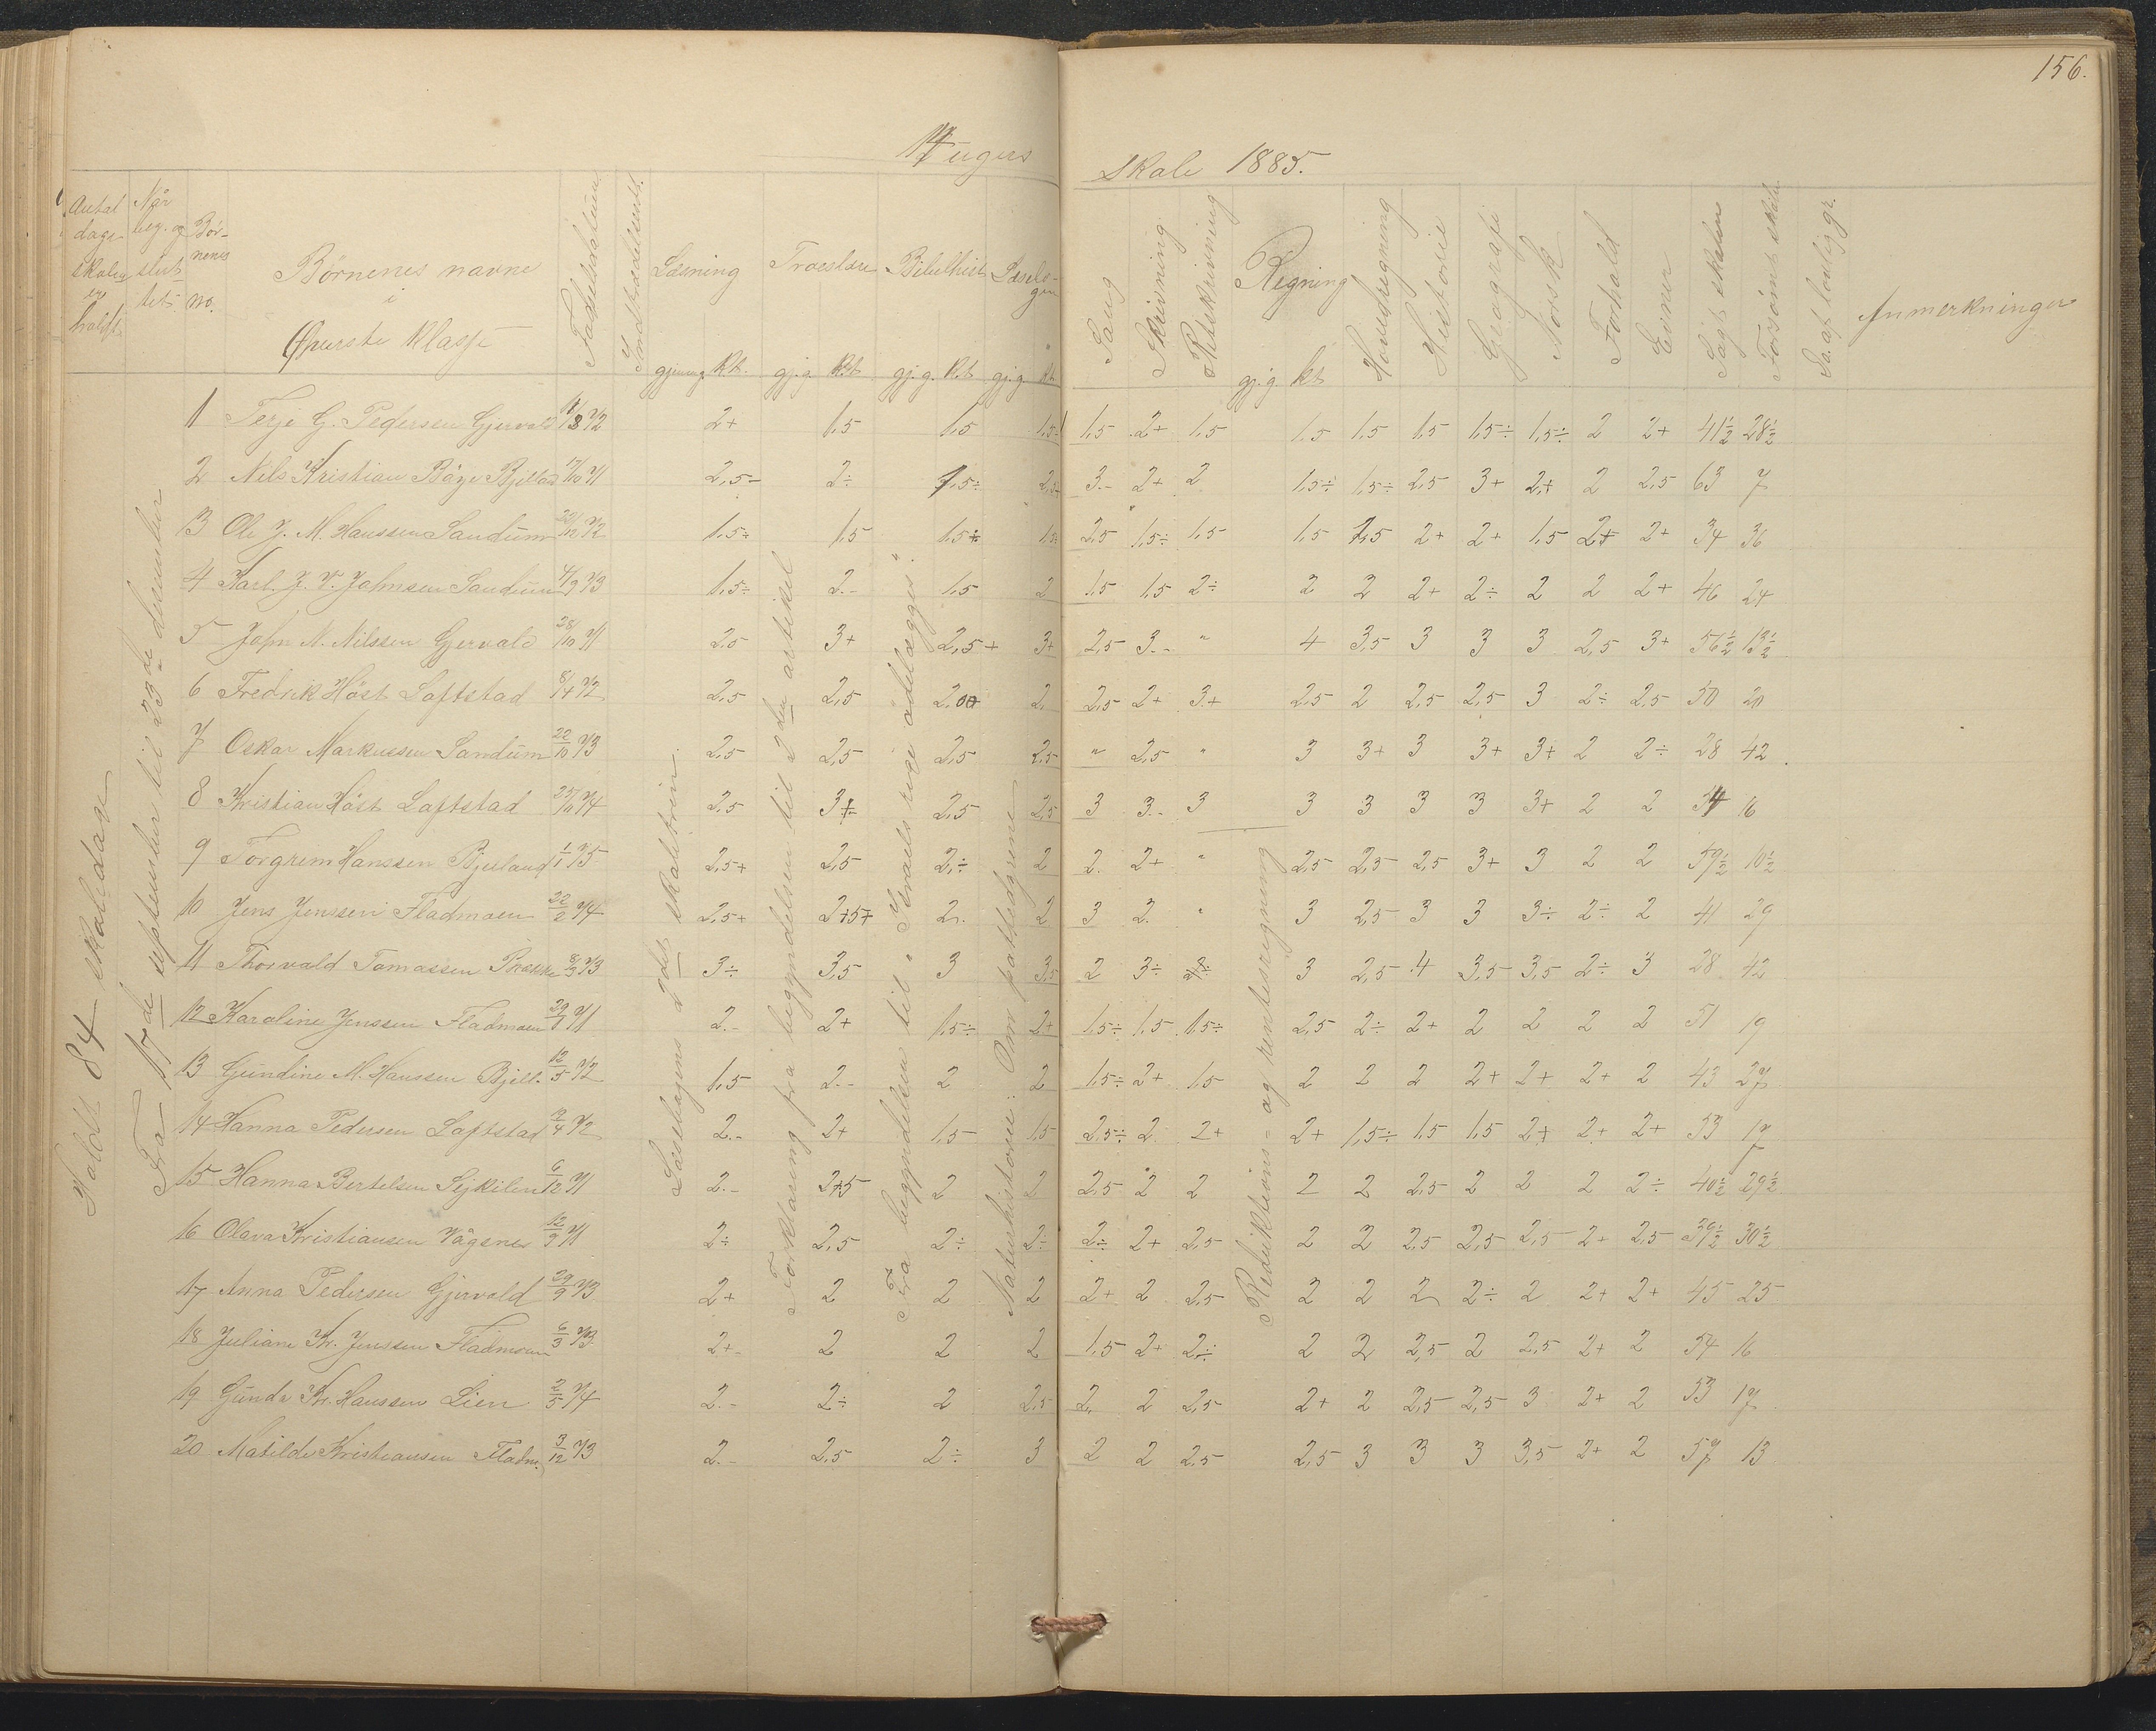 156.
14 ugers skole 1885.
Antal dage skolen er holdt
Når beg. og sluttet
Børnenes no.
Børnenes navne i Øverste klasse
Fødselsdatum
Indtrædelsent.
Læsning Troeslære Bibelhist. Læseb.
gjg. kt. gj.g. k.t. gj.g. k.t. gj.g. kt.
Sang Skrivning Retskrivning Regning Hovedregning Historie Geografi Norsk Forhold Evner Søgt skolen Forsømt skolen Anmerkninger
gj.g kt
Holdt 84 skoledage
Fra 17de september til 23de december
Læsebogens 2det skoletrin.
Forklaring fra begyndelsen til 2den artikel
Fra begyndelsen til "Israels rige ødelægges".
Naturhistorie: Om pattedyrene
Reduktions- og rentesregning
1 Terje G. Pedersen Gjervold 11/3 72 2+ 1,5 1,5 1,5÷ 1,5 2+ 1,5 1,5 1,5 1,5 1,5÷ 1,5÷ 2 2+ 41½ 28½
2 Nils Kristian Bøye Bjellad 17/10 71 2,5- 2÷ 1,5÷ 2,5 3.- 2+ 2 1,5÷ 1,5÷ 2,5 3+ 2+ 2 2,5 63 7
3 Ole J. M. Hanssen Sandum 22/12 72 1,5÷ 1,5 1,5+ 1,5 2,5 1,5÷ 1,5 1,5 1,5 2+ 2+ 1,5 2+ 2+ 34 36
4 Karl. J. V. Johnsen Sandum 4/9 73 1,5÷ 2.- 1,5 2 1,5 1,5 2÷ 2 2 2+ 2÷ 2 2 2+ 46 24
5 John N. Nilssen Gjervold 28/10 71 2,5 3+ 2,5+ 3+ 2,5 3.- " 4 3,5 3 3 3 2,5 3+ 56½ 13½
6 Fredrik Høst Loftstad 8/4 72 2,5 2,5 2,00 2 2,5 2+ 3+ 2,5 2 2,5 2,5 3 2÷ 2,5 50 20
7 Oskar Markussen Sandum 22/10 73 2,5 2,5 2,5 2,5 " 2,5 " 3 3+ 3 3+ 3+ 2 2÷ 28 42
8 Kristian Høst Loftstad 25/10 74 2,5 3+ 2,5 2,5 3 3.- 3 3 3 3 3 3+ 2 2 54 16
9 Torgrim Hanssen Bjuland 1/1 75 2,5+ 2,5 2,÷ 2 2. 2+ " 2,5 2,5 2,5 3+ 3 2 2 59½ 10½
10 Jens Jenssen Fladmoen 22/2 74 2,5+ 2,5+ 2. 2 3 2. " 3 2,5 3 3 3÷ 2÷ 2 41 29
11 Thorvald Tomassen Brække 8/9 73 3÷ 3,5 3 3,5 2 3÷ 2÷ 3 2,5 4 3,5 3,5 2÷ 3 28 42
12 Karoline Jenssen Fladmoen 29/1 71 2.- 2+ 1,5÷ 2+ 1,5÷ 1,5 1,5÷ 2,5 2÷ 2+ 2 2 2 2 51 19
13 Gundine M. Hanssen Bjell. 12/5 72 1,5 2.- 2 2 1,5÷ 2+ 1,5 2 2 2 2+ 2+ 2+ 2 43 27
14 Hanna Pedersen Loftstad 2/4 72 2.- 2+ 1,5 1,5 2,5÷ 2 2+ 2+ 1,5÷ 1,5 1,5 2+ 2+ 2+ 53 17
15 Hanna Bertelsen Sejkilen 6/12 71 2.- 2,5 2 2 2,5 2 2 2 2 2,5 2 2 2 2÷ 40½ 29½
16 Olava Kristiansen Vågsnes 12/9 71 2÷ 2,5 2÷ 2÷ 2÷ 2+ 2,5 2 2 2,5 2,5 2,5 2+ 2,5 39½ 30½
17 Anna Pedersen Gjervold 29/9 73 2+ 2 2 2 2+ 2 2,5 2 2 2 2÷ 2 2+ 2+ 45 25
18 Juliane Kr. Jenssen Fladmoen 6/3 73 2+- 2 2 2 1,5 2+ 2÷ 2 2 2,5 2 2,5 2+ 2 54 16
19 Gunda Kr. Hanssen Lien 2/5 74 2.- 2÷ 2 2,5 2. 2 2,5 2+ 2 2,5 2,5 3 2+ 2 53 17
20 Matilde Kristiansen Fladm. 3/12 73 2.- 2,5 2÷ 3 2 2 2,5 2,5 3 3 3 3,5 2+ 2 57 13